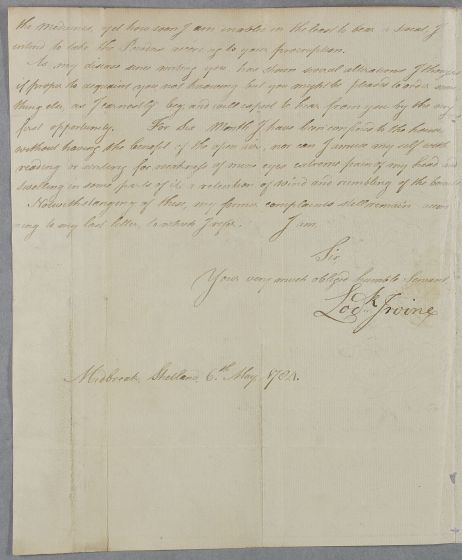 the Medicines, yet how soon I am enabled in the least to bear a travel I
intend to take the Services according to your prescription.
As my disease since writing you has shewn several alterations, I thought
it proper to acquaint you not knowing but you might be pleased to order some
thing else, as I earnestly beg and will expect to hear from you by the very
first opportunity. For Six Months I have been confined to the house
without having the benefit of the open air, nor can I amuse my self with
reading or writing for weakness of mine eyes extreme pain of my head and
swelling in some parts of it, a retention of wind and rumbling of the bowels
Notwithstanding of these, my former complaints still remain accor
ding to my last letter, to which I refer. I am,
Sir
Your very much obliged humble Servant
Lod.k Irvine
Midbreak, Shetland 6.th May 1784.